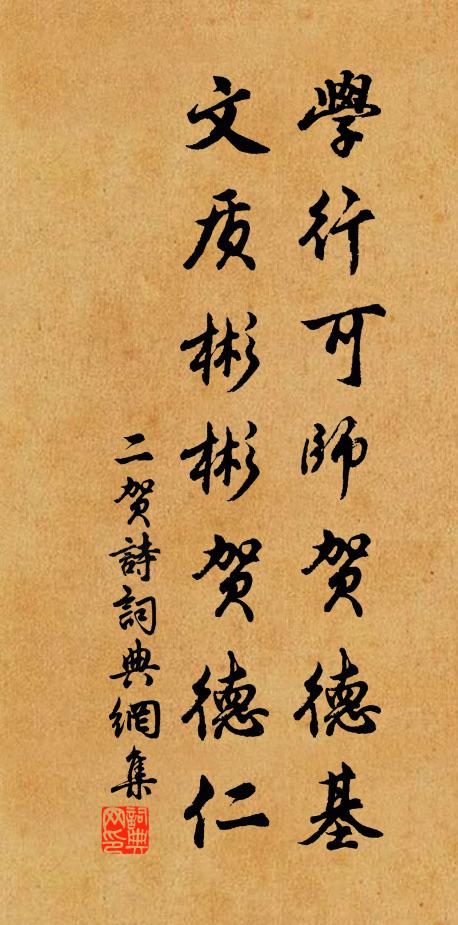 學行可師贺德基
文质彬彬贺德仁
二贺詩詞典網集
詞典网印